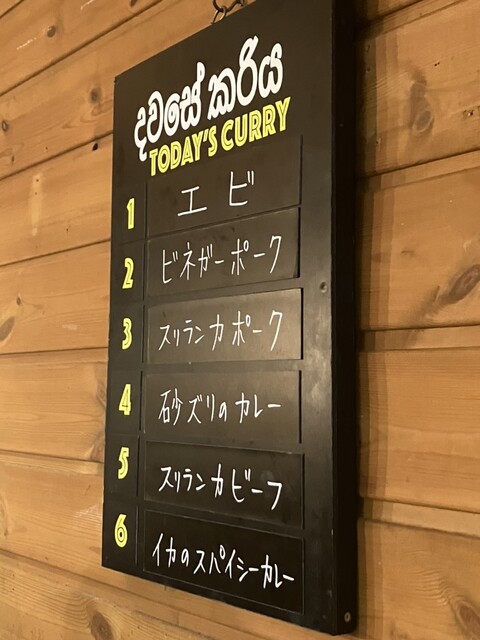 දවසේ කරිය
TODAY'S CURRY
1 エビ
2 ビネガーポーク
3 スリランカポーク
4 砂ズリのカレー
5 スリランカビーフ
6 イカのスパイシーカレー